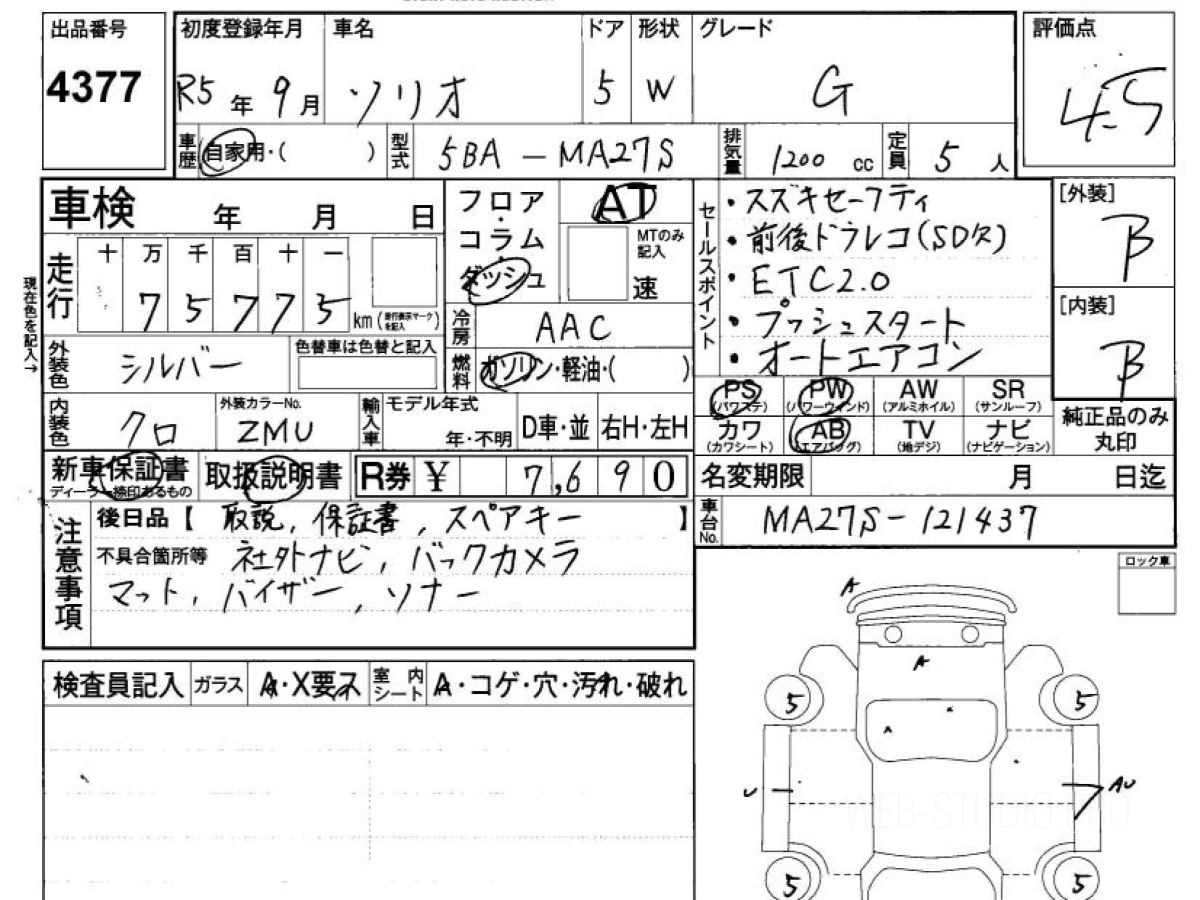 出品番号 4377
初度登録年月 R5年 9月
車名 ソリオ
ドア 5
形状 W
グレード G
評価点 4.5
車歴 自家用・( )
型式 5BA-MA27S
排気量 1200 cc
定員 5人
車検 年 月 日
フロア・コラム・ダッシュ
AT
MTのみ記入 速
セールスポイント
・スズキセーフティ
・前後ドラレコ(SD欠)
・ETC2.0
・プッシュスタート
・オートエアコン
[外装] B
[内装] B
現在色を記入→
走行 十 万 千 百 十 一
7 5 7 7 5 km (走行表示マークを記入)
冷房 AAC
外装色 シルバー
色替車は色替と記入
燃料 ガソリン・軽油・( )
PS (パワステ) PW (パワーウィンド) AW (アルミホイル) SR (サンルーフ)
カワ (カワシート) AB (エアバッグ) TV (地デジ) ナビ (ナビゲーション)
純正品のみ丸印
内装色 クロ
外装カラーNo. ZMU
輸入車 モデル年式 年・不明
D車・並 右H・左H
新車保証書 ディーラー捺印あるもの
取扱説明書
R券 ¥ 7,690
名変期限 月 日迄
車台No. MA27S-121437
注意事項
後日品【 取説, 保証書, スペアキー 】
不具合箇所等 社外ナビ, バックカメラ
マット, バイザー, ソナー
ロック車
検査員記入 ガラス A・X要ス 室内シート A・コゲ・穴・汚れ・破れ
A
A
5 5
U AU
5 5
WEB-STUDIO.PRO